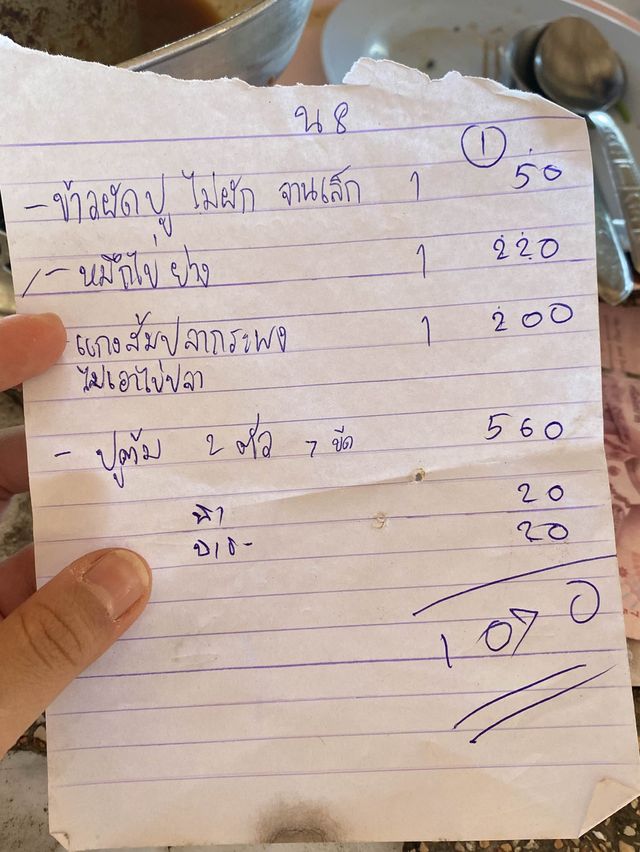 น 8
①
- ข้าวผัดปู ไม่ผัก จานเล็ก 1 50
- หมึกไข่ ย่าง 1 220
แกงส้มปลากระพง 1 200
ไม่เอาไข่ปลา
- ปูต้ม 2 ตัว 7 ขีด 560
20
20
1070